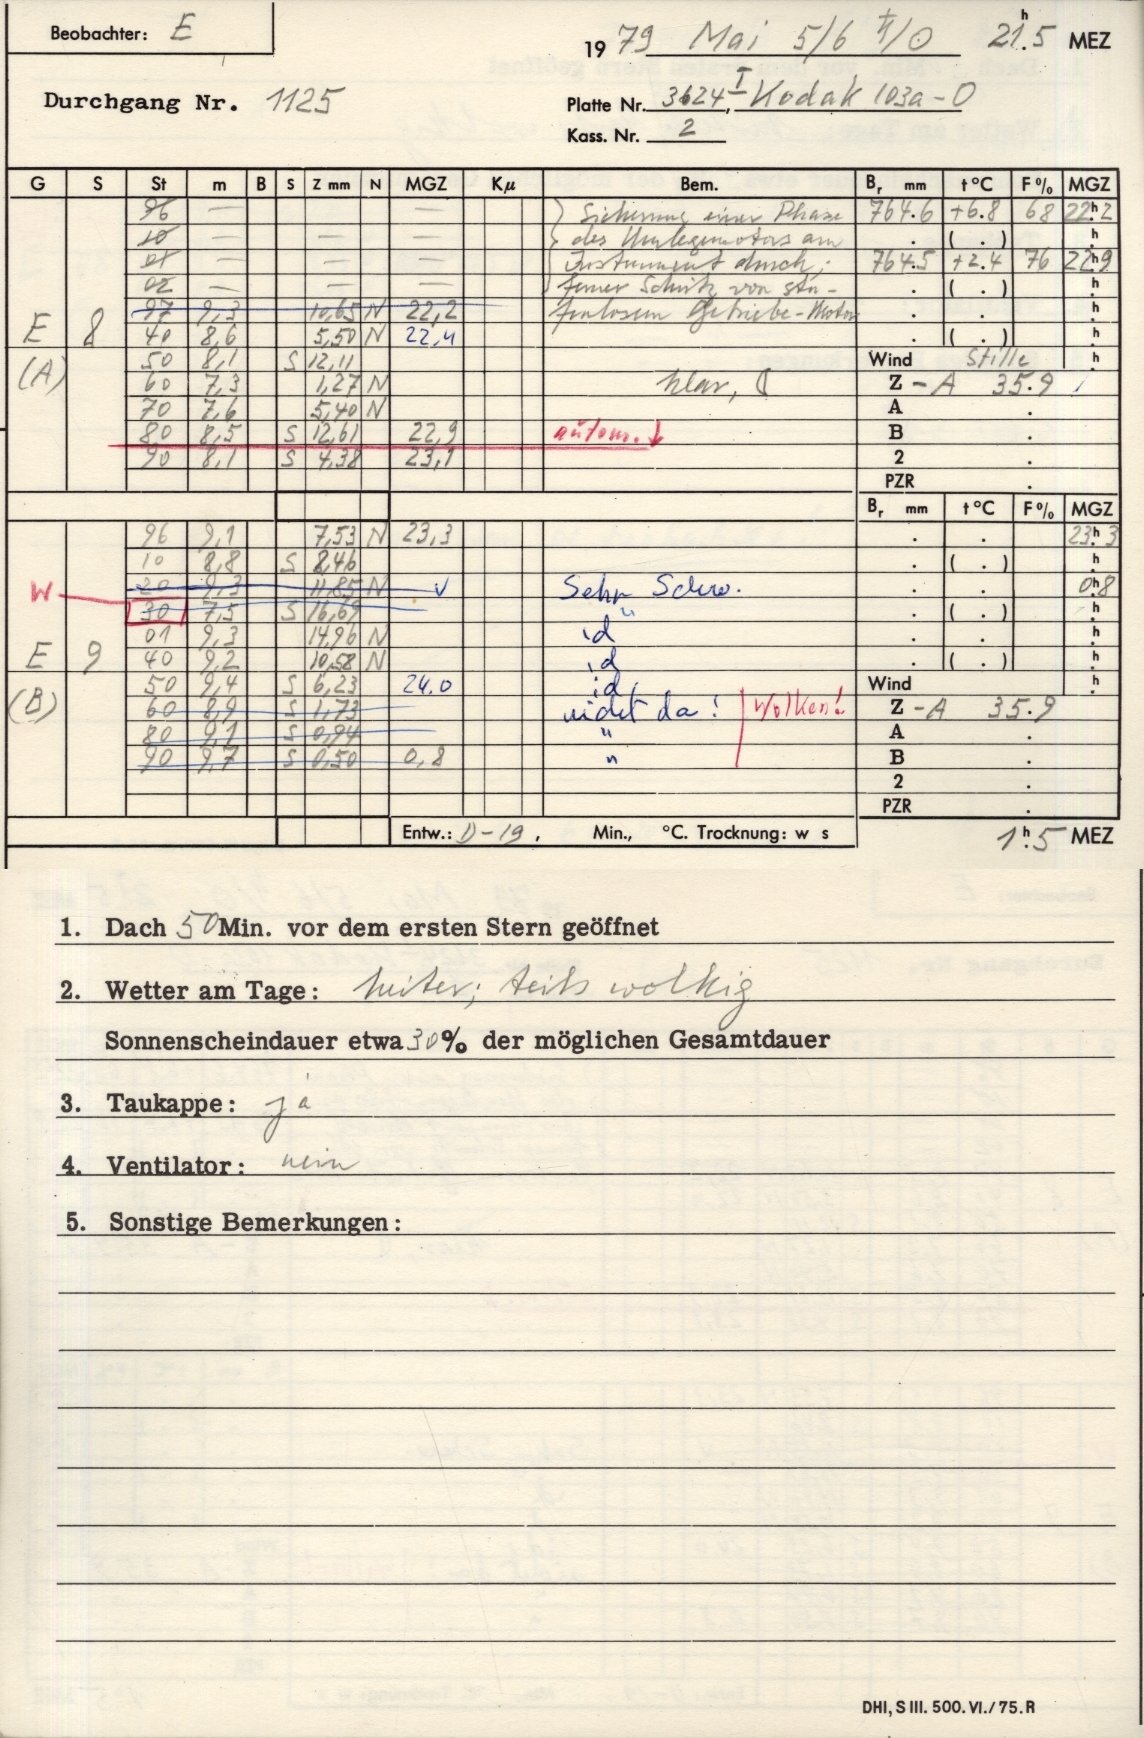 Beobachter: E
19 79 Mai 5/6 ♄/⊙ 21ʰ.5 MEZ
Durchgang Nr. 1125
Platte Nr. 3624, I Kodak 103a-O
Kass. Nr. 2
G S St m B S Z mm N MGZ Kμ Bem. Bᵣ mm t°C F% MGZ
96 — — Sicherung einer Phase 764.6 +6.8 68 22ʰ.2
10 — — — des Umlegemotors am . ( . ) ʰ.
01 — — — Instrument durch; 764.5 +2.4 76 22ʰ.9
02 — — — ferner Schütz von stu- . ( . ) ʰ.
97 9,3 10,65 N 22,2 fenlosem Getriebe-Motor . . ʰ.
E 8 40 8,6 5,50 N 22,4 . ( . ) ʰ.
(A) 50 8,1 S 12,11 Wind Stille ʰ.
60 7,3 1,27 N klar, ☾ Z -A 35.9
70 7,6 5,40 N A .
80 8,5 S 12,61 22,9 autom. ↓ B .
90 8,1 S 4,38 23,1 2 .
PZR .
Bᵣ mm t°C F% MGZ
96 9,1 7,53 N 23,3 . . 23ʰ.3
10 8,8 S 8,46 . ( . ) ʰ.
W 20 9,3 11,85 N v Sehr Schw. . . 0ʰ.8
30 7,5 S 16,69 " . ( . ) ʰ.
01 9,3 14,96 N id . . ʰ.
E 9 40 9,2 10,58 N id . ( . ) ʰ.
(B) 50 9,4 S 6,23 24.0 id Wind ʰ.
60 8,9 S 1,73 nicht da! Wolken! Z -A 35.9
80 9,1 S 0,94 " A .
90 9,7 S 0,50 0,8 " B .
2 .
PZR .
Entw.: D-19, Min., °C. Trocknung: w s 1ʰ.5 MEZ
1. Dach 50 Min. vor dem ersten Stern geöffnet
2. Wetter am Tage: heiter; teils wolkig
Sonnenscheindauer etwa 30% der möglichen Gesamtdauer
3. Taukappe: ja
4. Ventilator: nein
5. Sonstige Bemerkungen:
DHI, S III. 500. VI./75. R